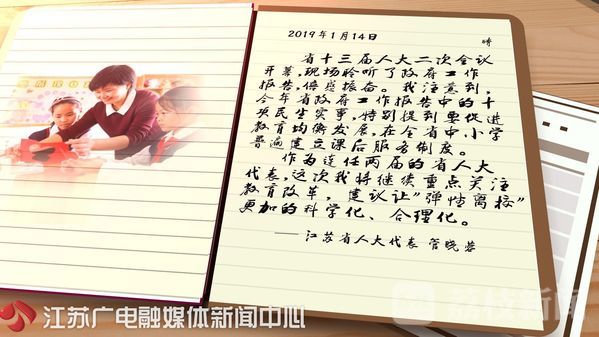 2019年1月14日
晴
省十三届人大二次会议
开幕,现场聆听了政府工作
报告,倍感振奋。我注意到,
今年省政府工作报告中的十
项民生实事,特别提到要促进
教育均衡发展,在全省中小学
普遍建立课后服务制度。
作为连任两届的省人大
代表,这次我将继续重点关注
教育改革,建议让“弹性离校”
更加的科学化、合理化。
——江苏省人大代表 管晓蓉
江苏广电融媒体新闻中心
荔枝新闻